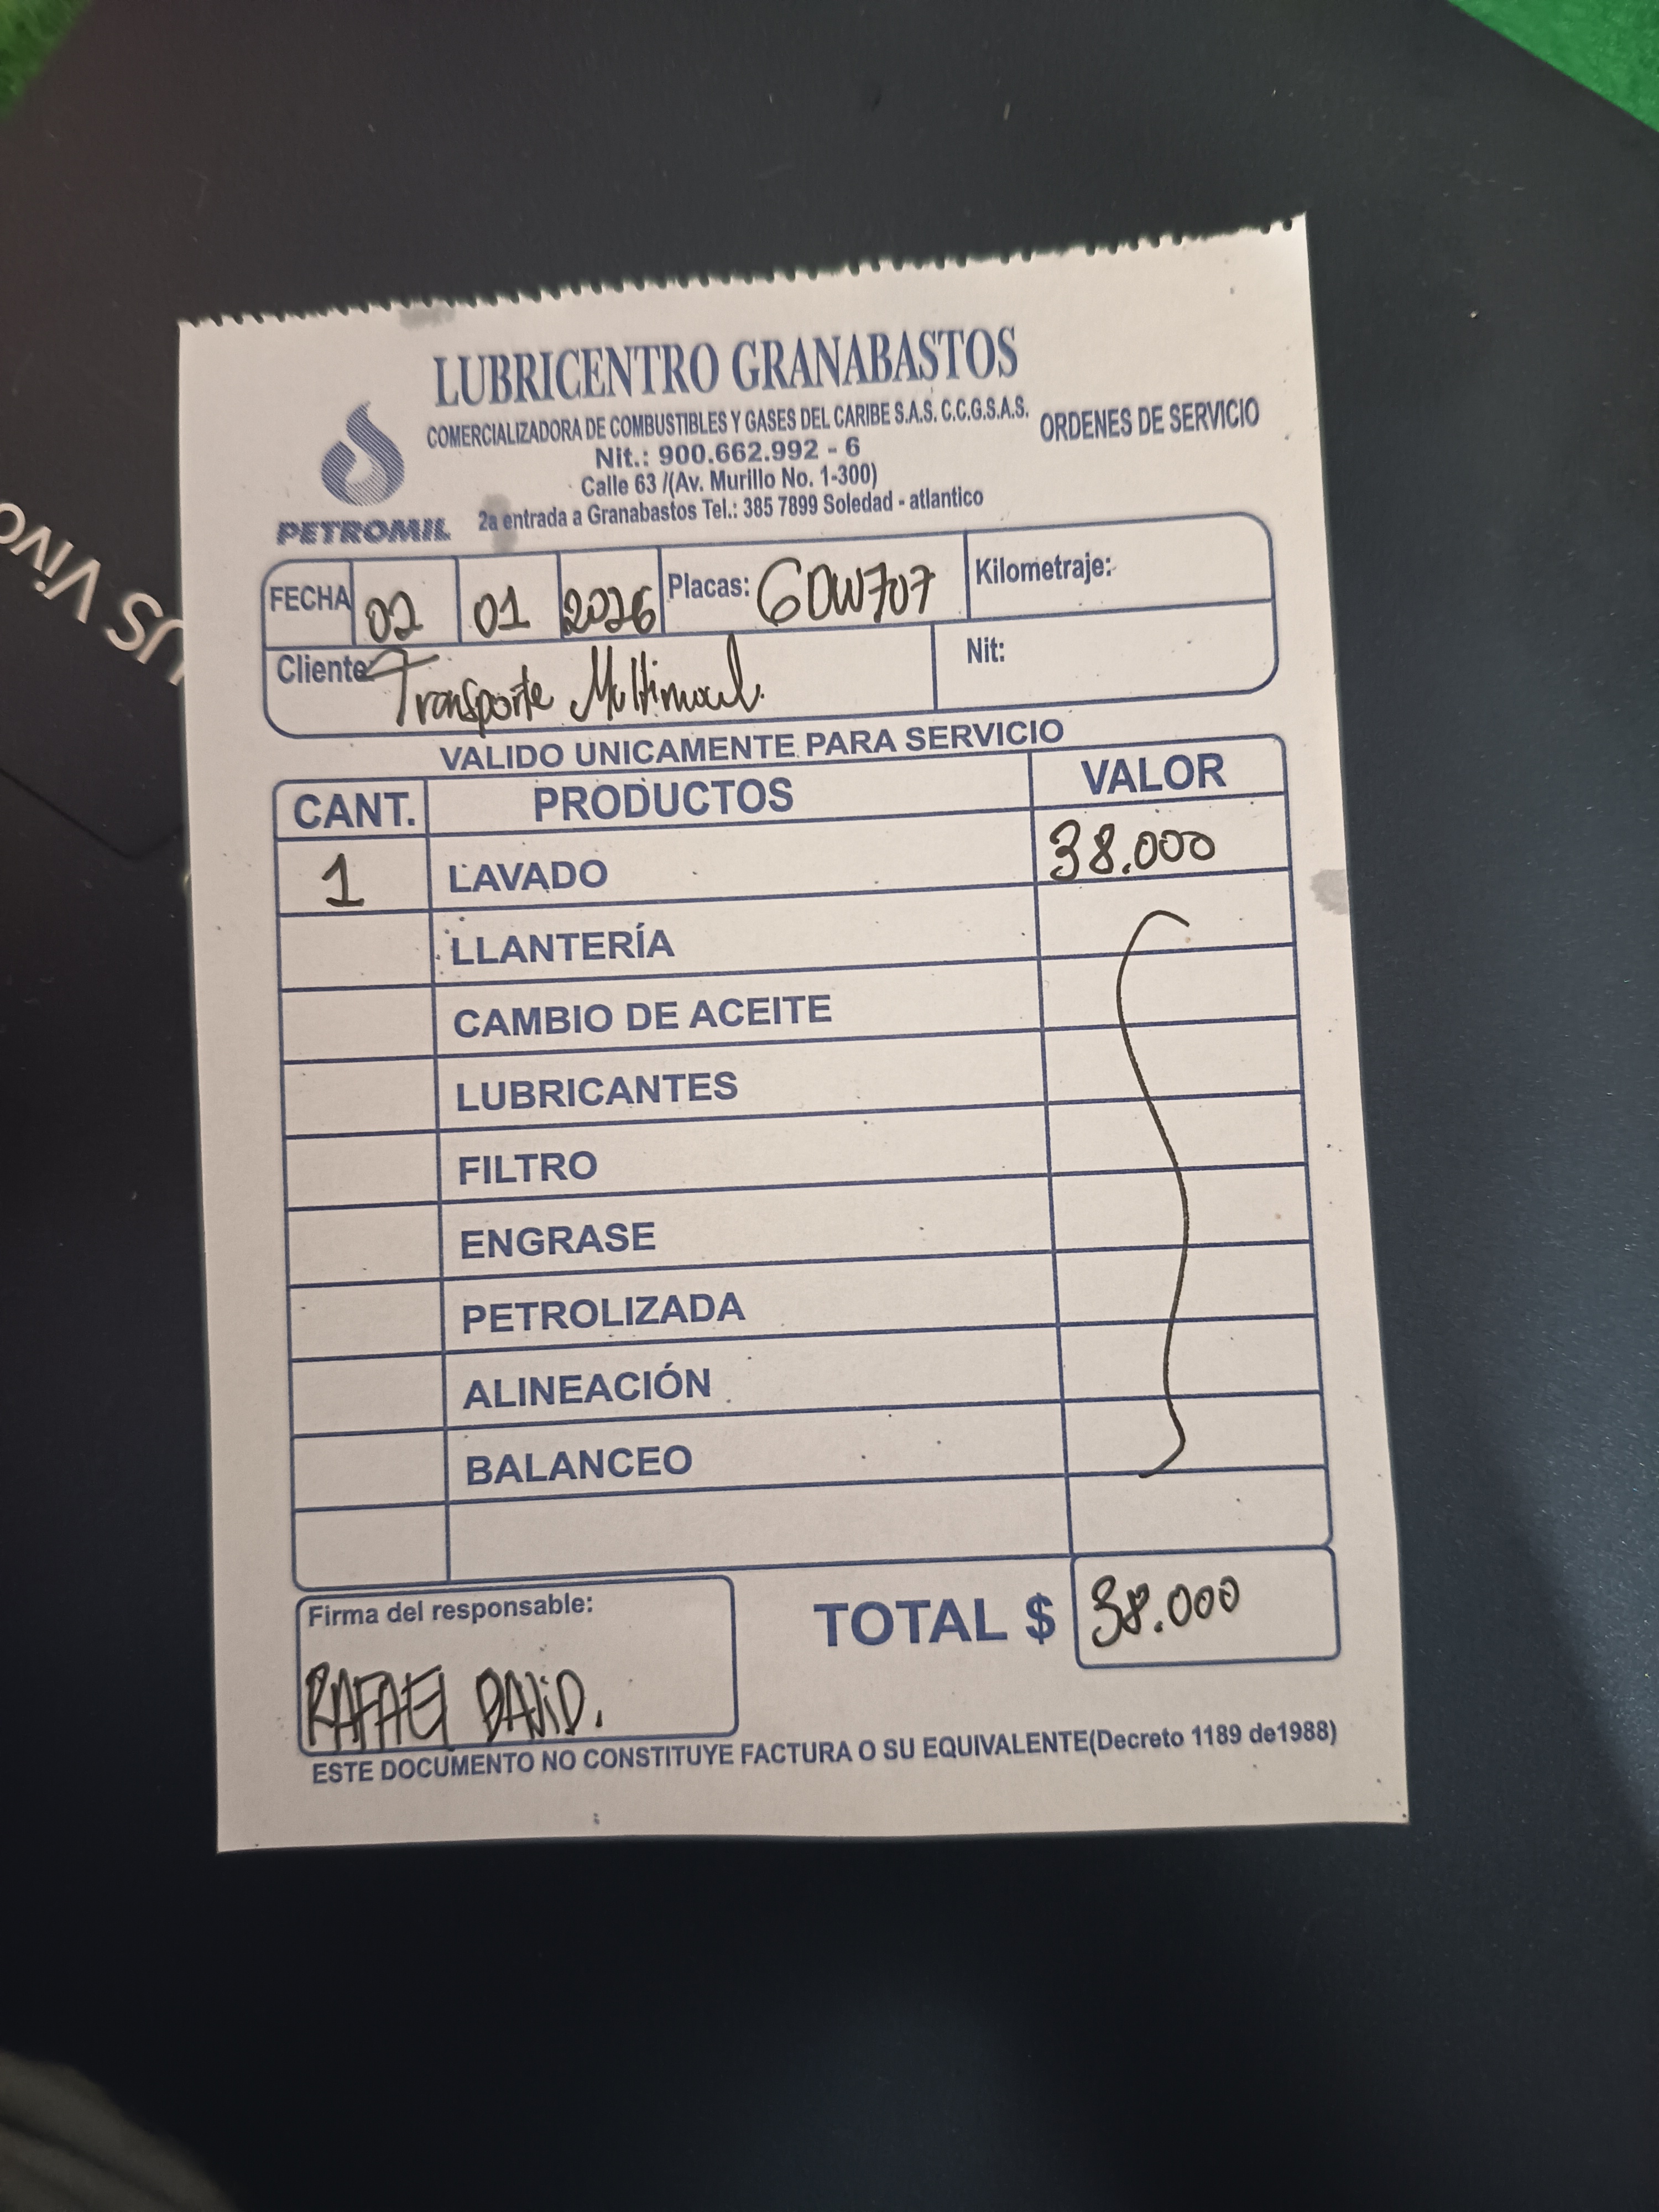 LUBRICENTRO GRANABASTOS
COMERCIALIZADORA DE COMBUSTIBLES Y GASES DEL CARIBE S.A.S. C.C.G.S.A.S.
ORDENES DE SERVICIO
Nit.: 900.662.992 - 6
Calle 63 /(Av. Murillo No. 1-300)
2a entrada a Granabastos Tel.: 385 7899 Soledad - atlantico
PETROMIL
FECHA 02 01 2026 Placas: GDW707 Kilometraje:
Cliente: Transporte Nit:
VALIDO UNICAMENTE PARA SERVICIO
CANT. PRODUCTOS VALOR
1 LAVADO 38.000
LLANTERÍA
CAMBIO DE ACEITE
LUBRICANTES
FILTRO
ENGRASE
PETROLIZADA
ALINEACIÓN
BALANCEO
Firma del responsable:
RAFAEL DAVID.
TOTAL $ 38.000
ESTE DOCUMENTO NO CONSTITUYE FACTURA O SU EQUIVALENTE(Decreto 1189 de1988)